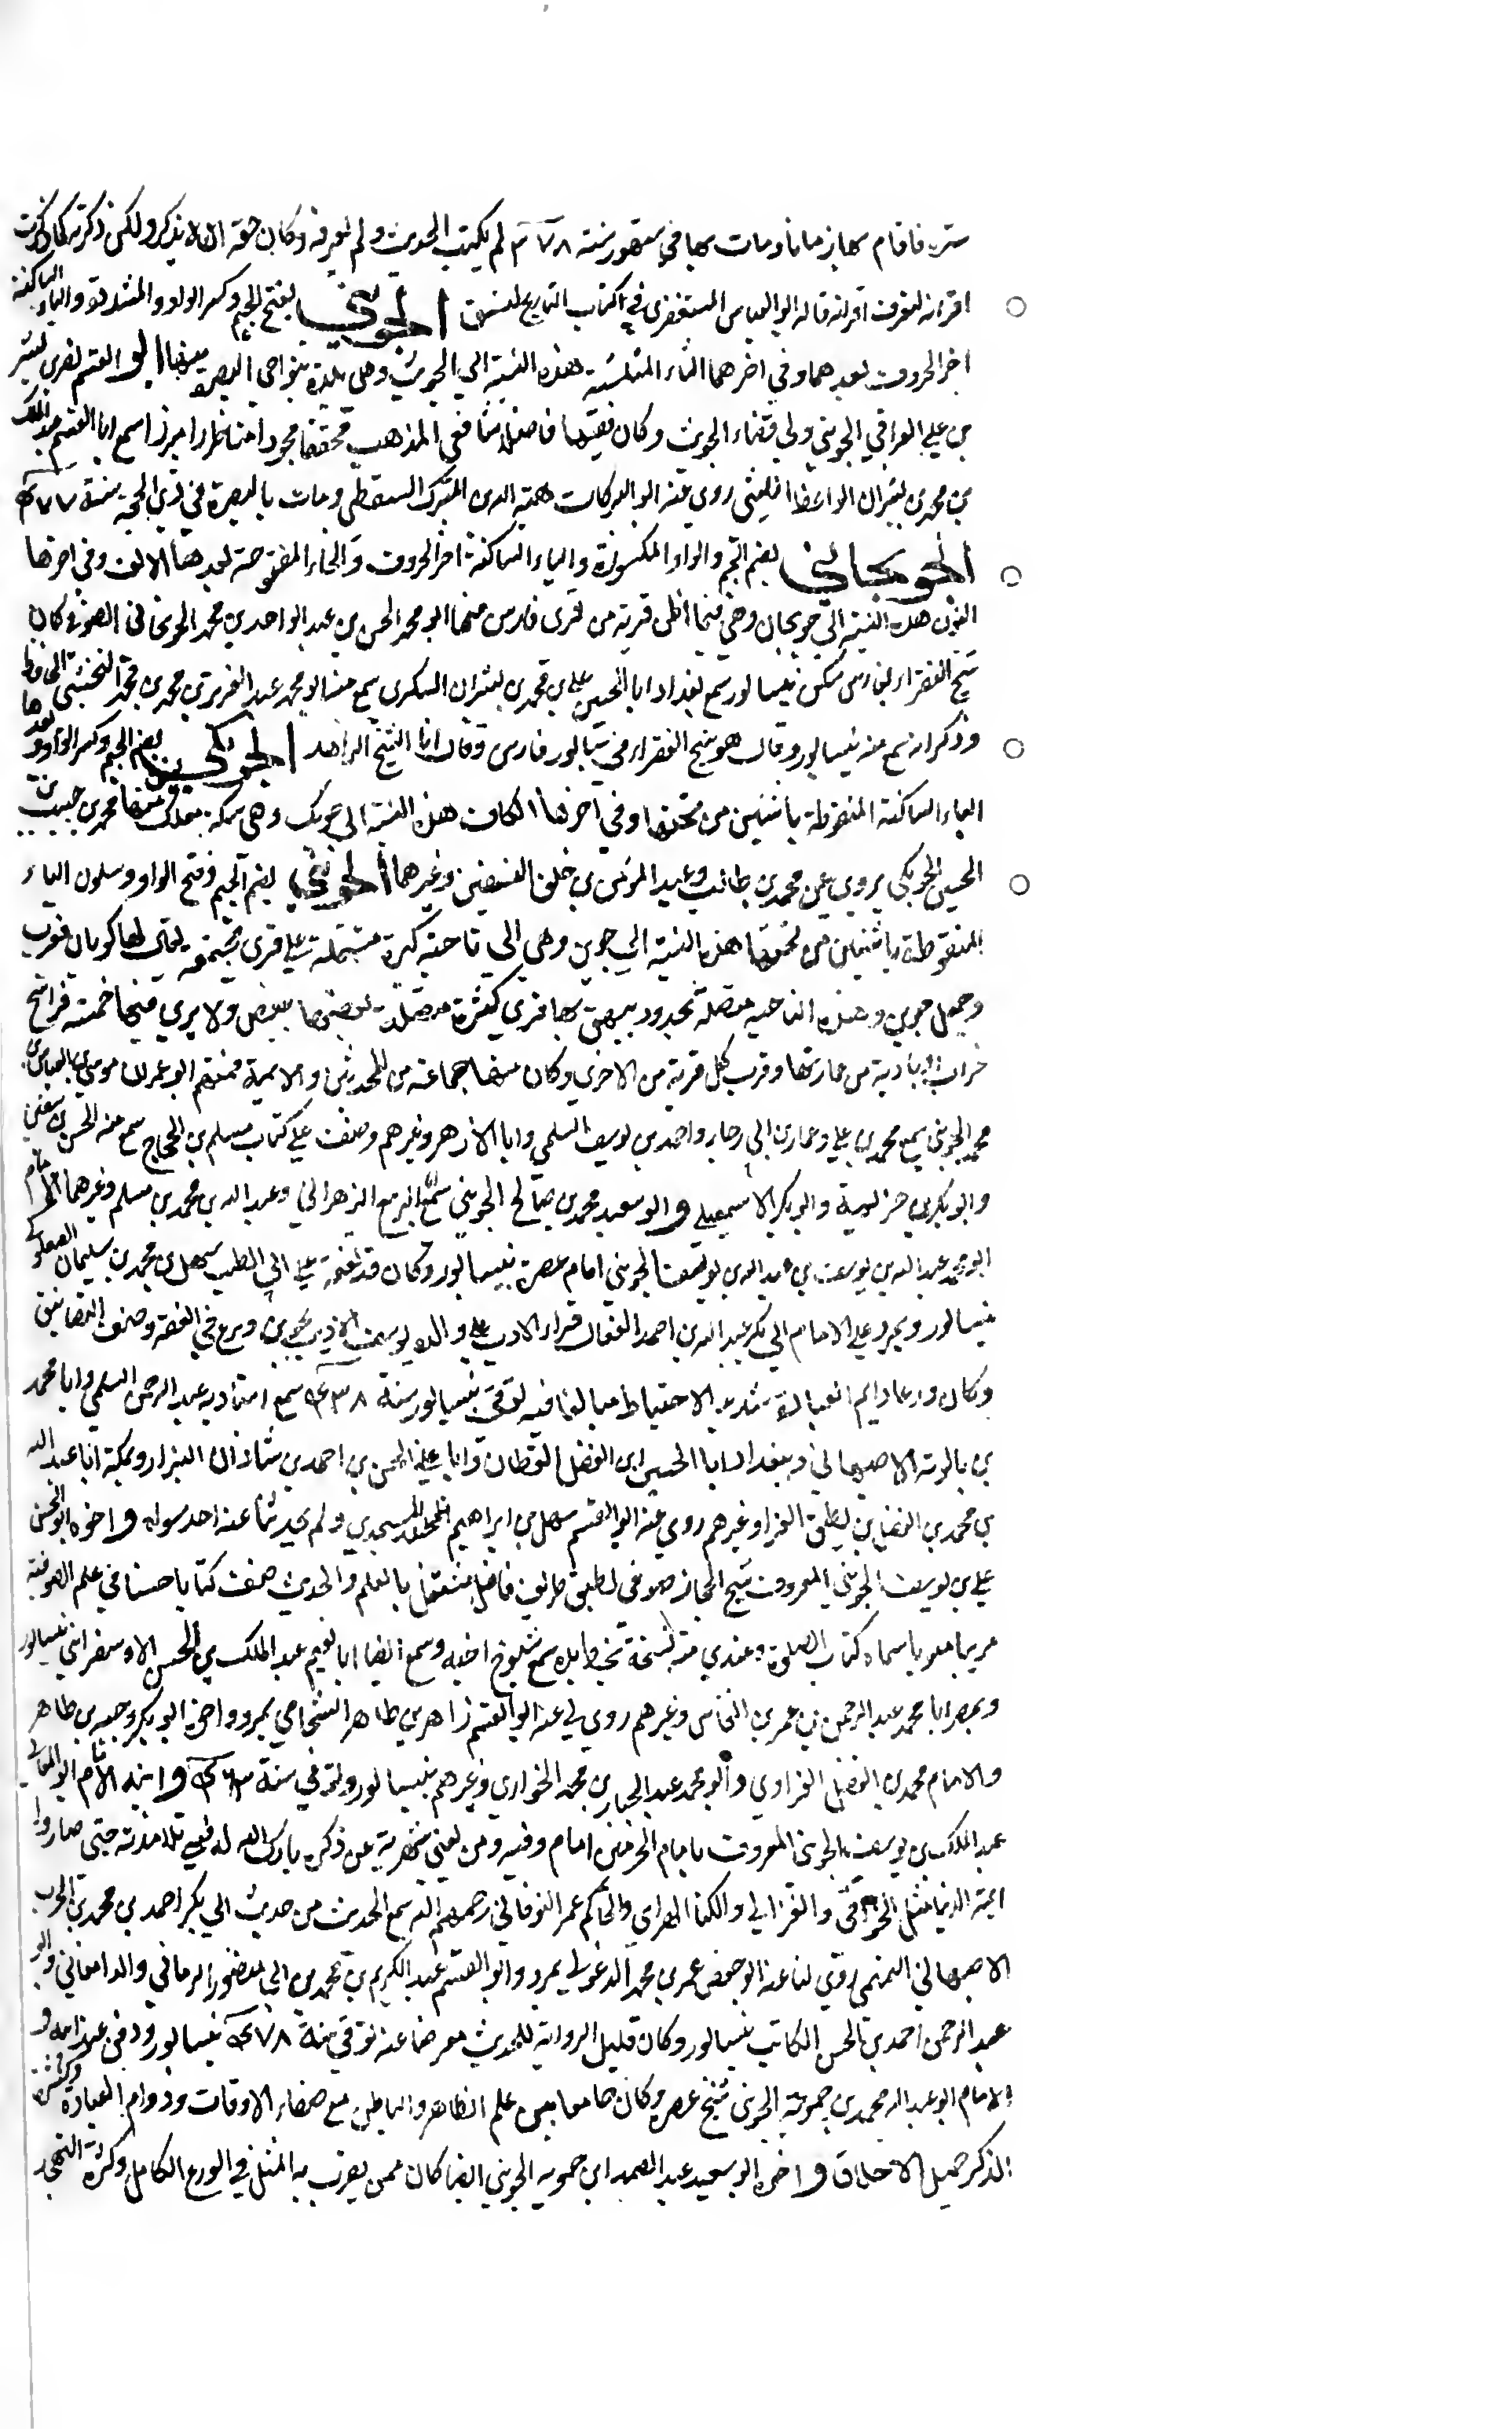 سترہ فاقام بها زمانا ومات بها في شهور سنة ٣٧٨ لم يكتب الحديث ولم يعرفه وكان حقه ان لا يذكر ولكن ذكرته كما ذكرت
اقرانه لتعرف اقرانه قاله ابو العباس المستغفري في كتاب التاريخ لنسف الجويثي بفتح الجيم وكسر الواو والمشددة والياء الساكنة
اخر الحروف بعدهما وفي اخرهما الثاء المثلثة هذه النسبة الي الجويث وهي بلدة بنواحي البصرة منها ابو القسم نصر بن بشر
بن علي العراقي الجويثي ولي قضاء الجويث وكان فقيها فاضلا شافعي المذهب محققا مجودا مناظرا مبرزا سمع ابا القسم عبد الملك
بن محمد بن بشران الواعظ روي عنه ابو البركات هبة الله بن المبرك السقطي ومات بالبصرة في ذي الحجة سنة ٤٧٧
الجويخاني بضم الجيم والواو المكسورة والياء الساكنة اخر الحروف والخاء المفتوحة بعدها الالف وفي اخرها
النون هذه النسبة الي جويخان وهي فيما اظن قرية من قري فارس منها ابو محمد الحسن بن عبد الواحد بن محمد الجويخاني الصوفي كان
شيخ الفقراء بفارس سكن نيسابور سمع ببغداد ابا الحسين علي بن محمد بن بشران السكري سمع منه ابو محمد عبد العزيز بن محمد بن محمد النخشبي الحافظ
وذكر انه سمع منه بنيسابور وقال هو شيخ الفقراء في سابور فارس وقال انا الشيخ الزاهد الجويكي بضم الجيم وكسر الواو وبعدها
الياء الساكنة المنقوطة باثنتين من تحتها وفي اخرها الكاف هذه النسبة الي جويك وهي سكة بنسف منها محمد بن حيدر بن
الحسين الجويكي يروي عن محمد بن طالب وعبد المؤمن بن خلف النسفيين وغيرهما الجويني بضم الجيم وفتح الواو وسكون الياء
المنقوطة باثنتين من تحتها هذه النسبة الي جوين وهي الي ناحية كبيرة مشتملة علي قري مجتمعة يقال لها كويان فعرب
وجعل جوين وهذه الناحية متصلة بحدود بيهق بها قري كثيرة متصلة بعضها ببعض ولا يري فيها خمسة فراسخ
خراب او بادية من عمارتها وقرب كل قرية من الاخري وكان منها جماعة من المحدثين والايمة فمنهم ابو عمران موسي بن العباس بن
محمد الجويني سمع محمد بن علي وعمار بن رجاء واحمد بن يوسف السلمي وابا الازهر وغيرهم وصنف علي كتاب مسلم بن الحجاج سمع منه الحسن بن سفين
وابو بكر بن خزيمة وابو بكر الاسمعيلي وابو سعيد محمد بن صالح الجويني سمع ابا الربيع الزهراني وعبد الله بن محمد بن مسلم وغيرهما والامام
ابو محمد عبد الله بن يوسف بن عبد الله بن يوسف الجويني امام عصره بنيسابور وكان قد تفقه علي ابي الطيب سهل بن محمد بن سليمان الصعلوكي
بنيسابور وبمرو علي الامام ابي بكر عبد الله بن احمد القفال قراء الادب علي والده يوسف الاديب بجوين وبرع في الفقه وصنف التصانيف
وكان ورعا دايم العبادة شديد الاحتياط مبالغا فيه توفي بنيسابور سنة ٤٣٨ سمع استاديه عبد الرحمن السلمي وابا محمد
بن بالويه الاصبهاني وببغداد ابا الحسين ابن الفضل القطان وابا علي الحسن بن احمد بن شاذان البزار وبمكة ابا عبد الله
بن محمد بن الفضل بن نظيف الفراء وغيرهم روي عنه ابو القسم سهل بن ابراهيم المسجدي ولم يحدثنا عنه احد سواه واخوه ابو الحسن
علي بن يوسف الجويني المعروف بشيخ الحجاز صوفي لطيف ظريف فاضل مشتغل بالعلم والحديث صنف كتابا حسنا في علم الصوفية
مرتبا مبوبا سماه كتاب السلوة وعندي منه نسخة بخطه سمع شيوخ اخيه وسمع ايضا ابا نعيم عبد الملك بن الحسن الاسفرايني بنيسابور
وبمصر ابا محمد عبد الرحمن بن عمر بن النحاس وغيرهم روي لي عنه ابو القسم زاهر بن طاهر الشحامي بمرو واخوه ابو بكر وجيه بن طاهر
والامام محمد بن الفضل الفراوي وابو محمد عبد الجبار بن محمد الخواري وغيرهم بنيسابور وتوفي في سنة ٤٦٣ وابنه الامام ابو المعالي
عبد الملك بن يوسف الجويني المعروف بامام الحرمين امام وقته ومن يغني شهرته عن ذكره بارك الله له في تلامذته حتي صاروا
ايمة الدنيا مثل الخوافي والغزالي والكيا الهراسي والحاكم عمر النوقاني رحمهم الله سمع الحديث من حديث ابي بكر احمد بن محمد بن الحرب
الاصبهاني التميمي روي لنا عنه ابو حفص عمر بن محمد الدغولي بمرو وابو القسم عبد الكريم بن محمد بن ابي منصور الرماني والدامغاني وابو
عبد الرحمن احمد بن الحسن الكاتب بنيسابور وكان قليل الرواية للحديث معرضا عنه توفي سنة ٤٧٨ بنيسابور ودفن عند ابيه و
الامام ابو عبد الله محمد بن حمويه الجويني شيخ عصره وكان جامعا بين علم الظاهر والباطن مع صفاء الاوقات ودوام العبادة وكثرة
الذكر جميل الاخلاق واخوه ابو سعيد عبد الصمد ابن حمويه الجويني ايضا كان ممن يضرب به المثل في الورع الكامل وكثرة التهجد